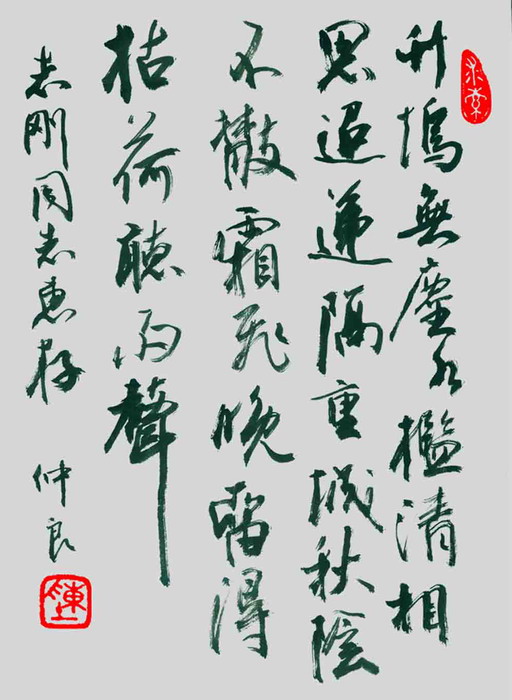 竹塢無塵水檻清相
思迢遞隔重城秋陰
不散霜飛晚留得
枯荷聽雨聲
志剛同志惠存 仲良